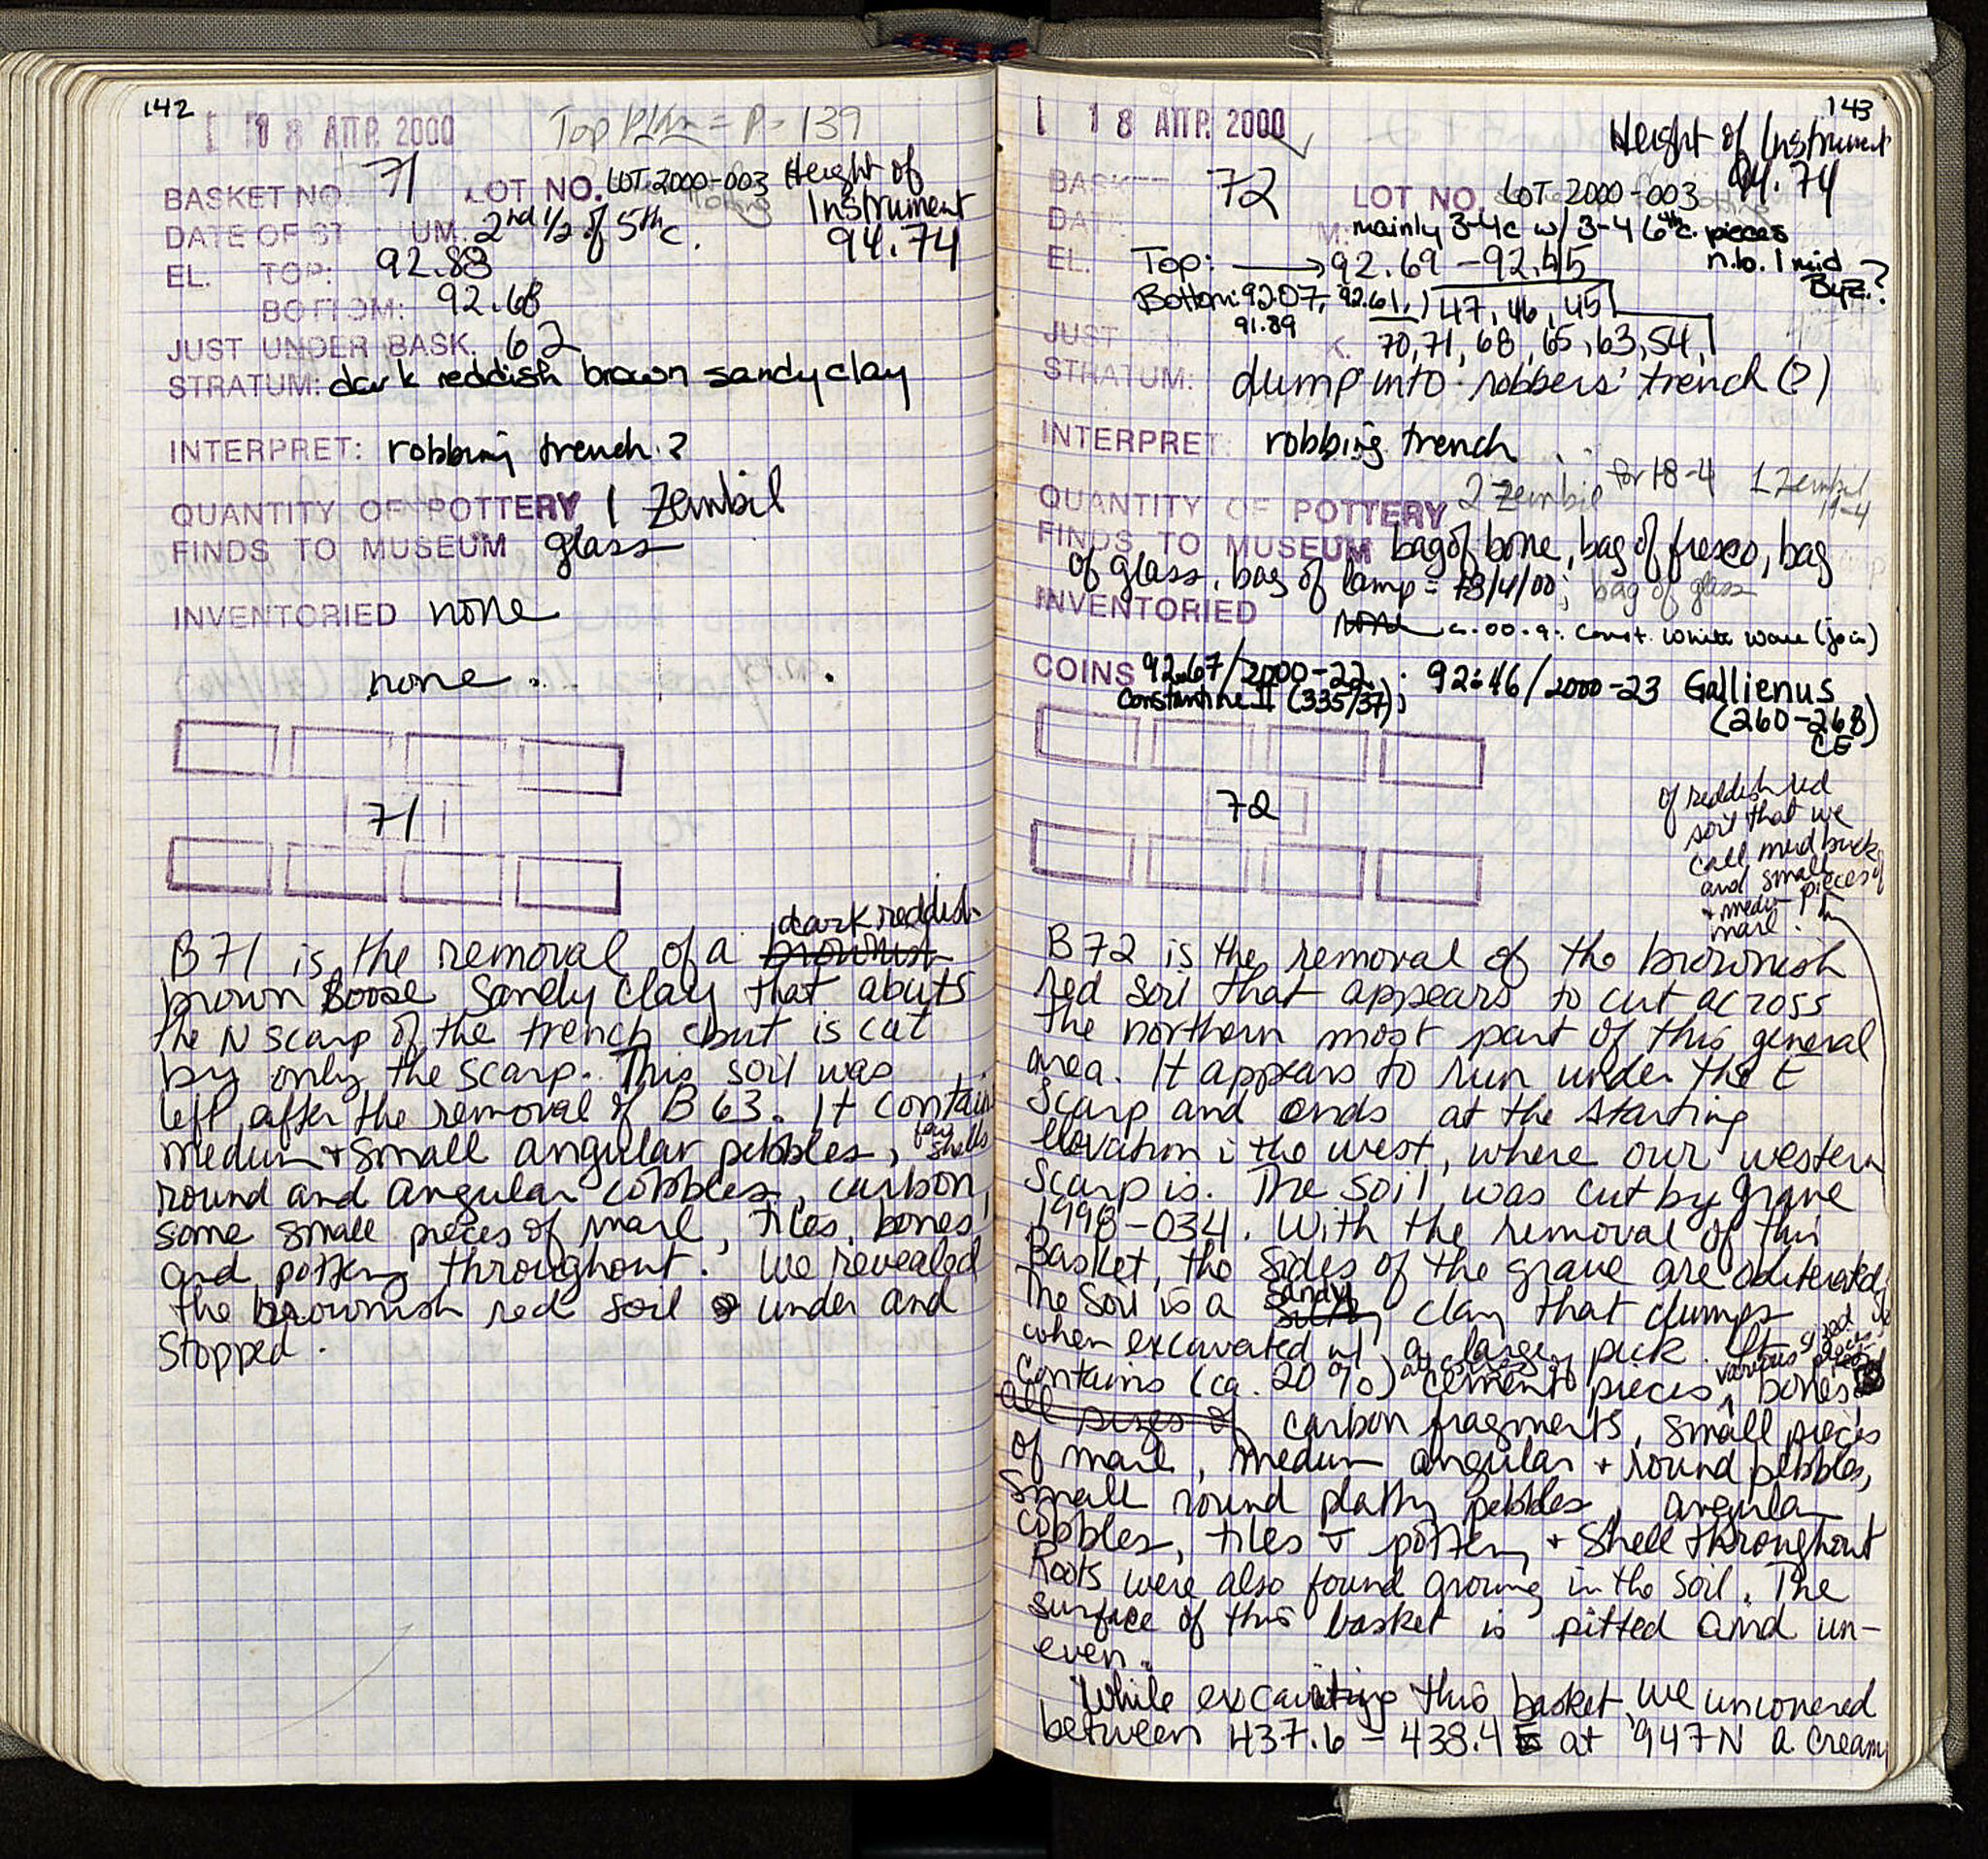 142
18 ΑΠΡ. 2000 Top Plan = P. 139
BASKET NO. 71 LOT NO. LOT 2000-003 Height of
Instrument
94.74
DATE OF ST UM. 2nd 1/2 of 5th c.
EL. TOP: 92.88
BOTTOM: 92.68
JUST UNDER BASK. 62
STRATUM: dark reddish brown sandy clay
INTERPRET: robbing trench?
QUANTITY OF POTTERY 1 Zembil
FINDS TO MUSEUM glass
INVENTORIED none
none.
71
dark reddish
B 71 is the removal of a brownish
brown loose sandy clay that abuts
the N scarp of the trench but is cut
by only the scarp. This soil was
left after the removal of B 63. It contain
medium + small angular pebbles, few shells
round and angular cobbles, carbon,
some small pieces of marl, tiles, bones,
and pottery throughout. We revealed
the brownish red soil under and
Stopped.
143
18 ΑΠΡ. 2000
Height of Instrument
94.74
BASK 72 LOT NO. LOT 2000-003
DATE M: mainly 3-4c w/ 3-4 6th c. pieces
n.b. 1 mid
Byz.?
EL. Top: → 92.69 - 92.45
Bottom: 92.07, 92.61, 47, 46, 45
91.89
JUST K. 70, 71, 68, 65, 63, 54,
STRATUM: dump into robbers' trench (?)
INTERPRET robbing trench
QUANTITY OF POTTERY 2 Zembil for 18-4 1 Zembil
FINDS TO MUSEUM bag of bone, bag of fresco, bag
of glass, bag of lamp = 18/4/00; bag of glass
INVENTORIED none c.00.9: Const. White Ware (join)
COINS 92.67/2000-22 · 92.46/2000-23 Gallienus
Constantine II (335/37); (260-268)
CE
72
of reddish red
soil that we
call mud brick
and small
+ medium pieces of
marl.
B 72 is the removal of the brownish
red soil that appears to cut across
the northern most part of this general
area. It appears to run under the E
Scarp and ends at the starting
elevation i the west, where our western
Scarp is. The soil was cut by grave
1998-034. With the removal of this
Basket, the sides of the grave are obliterated.
The soil is a silty sandy clay that clumps
when excavated w/ a large pick. It
contains (ca. 20%) cement pieces, various sized pieces bones
all sizes of carbon fragments, small pieces
of marl, medium angular + round pebbles,
Small round platty pebbles, angular
cobbles, tiles + pottery + shell throughout
Roots were also found growing in the soil. The
surface of this basket is pitted and un-
even.
While excavating this basket we uncovered
between 437.6 - 438.4 E at 947 N a creamy